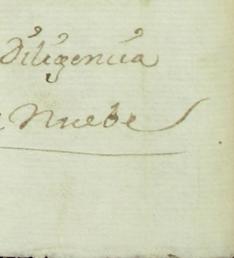 Diligencia
Nuebe